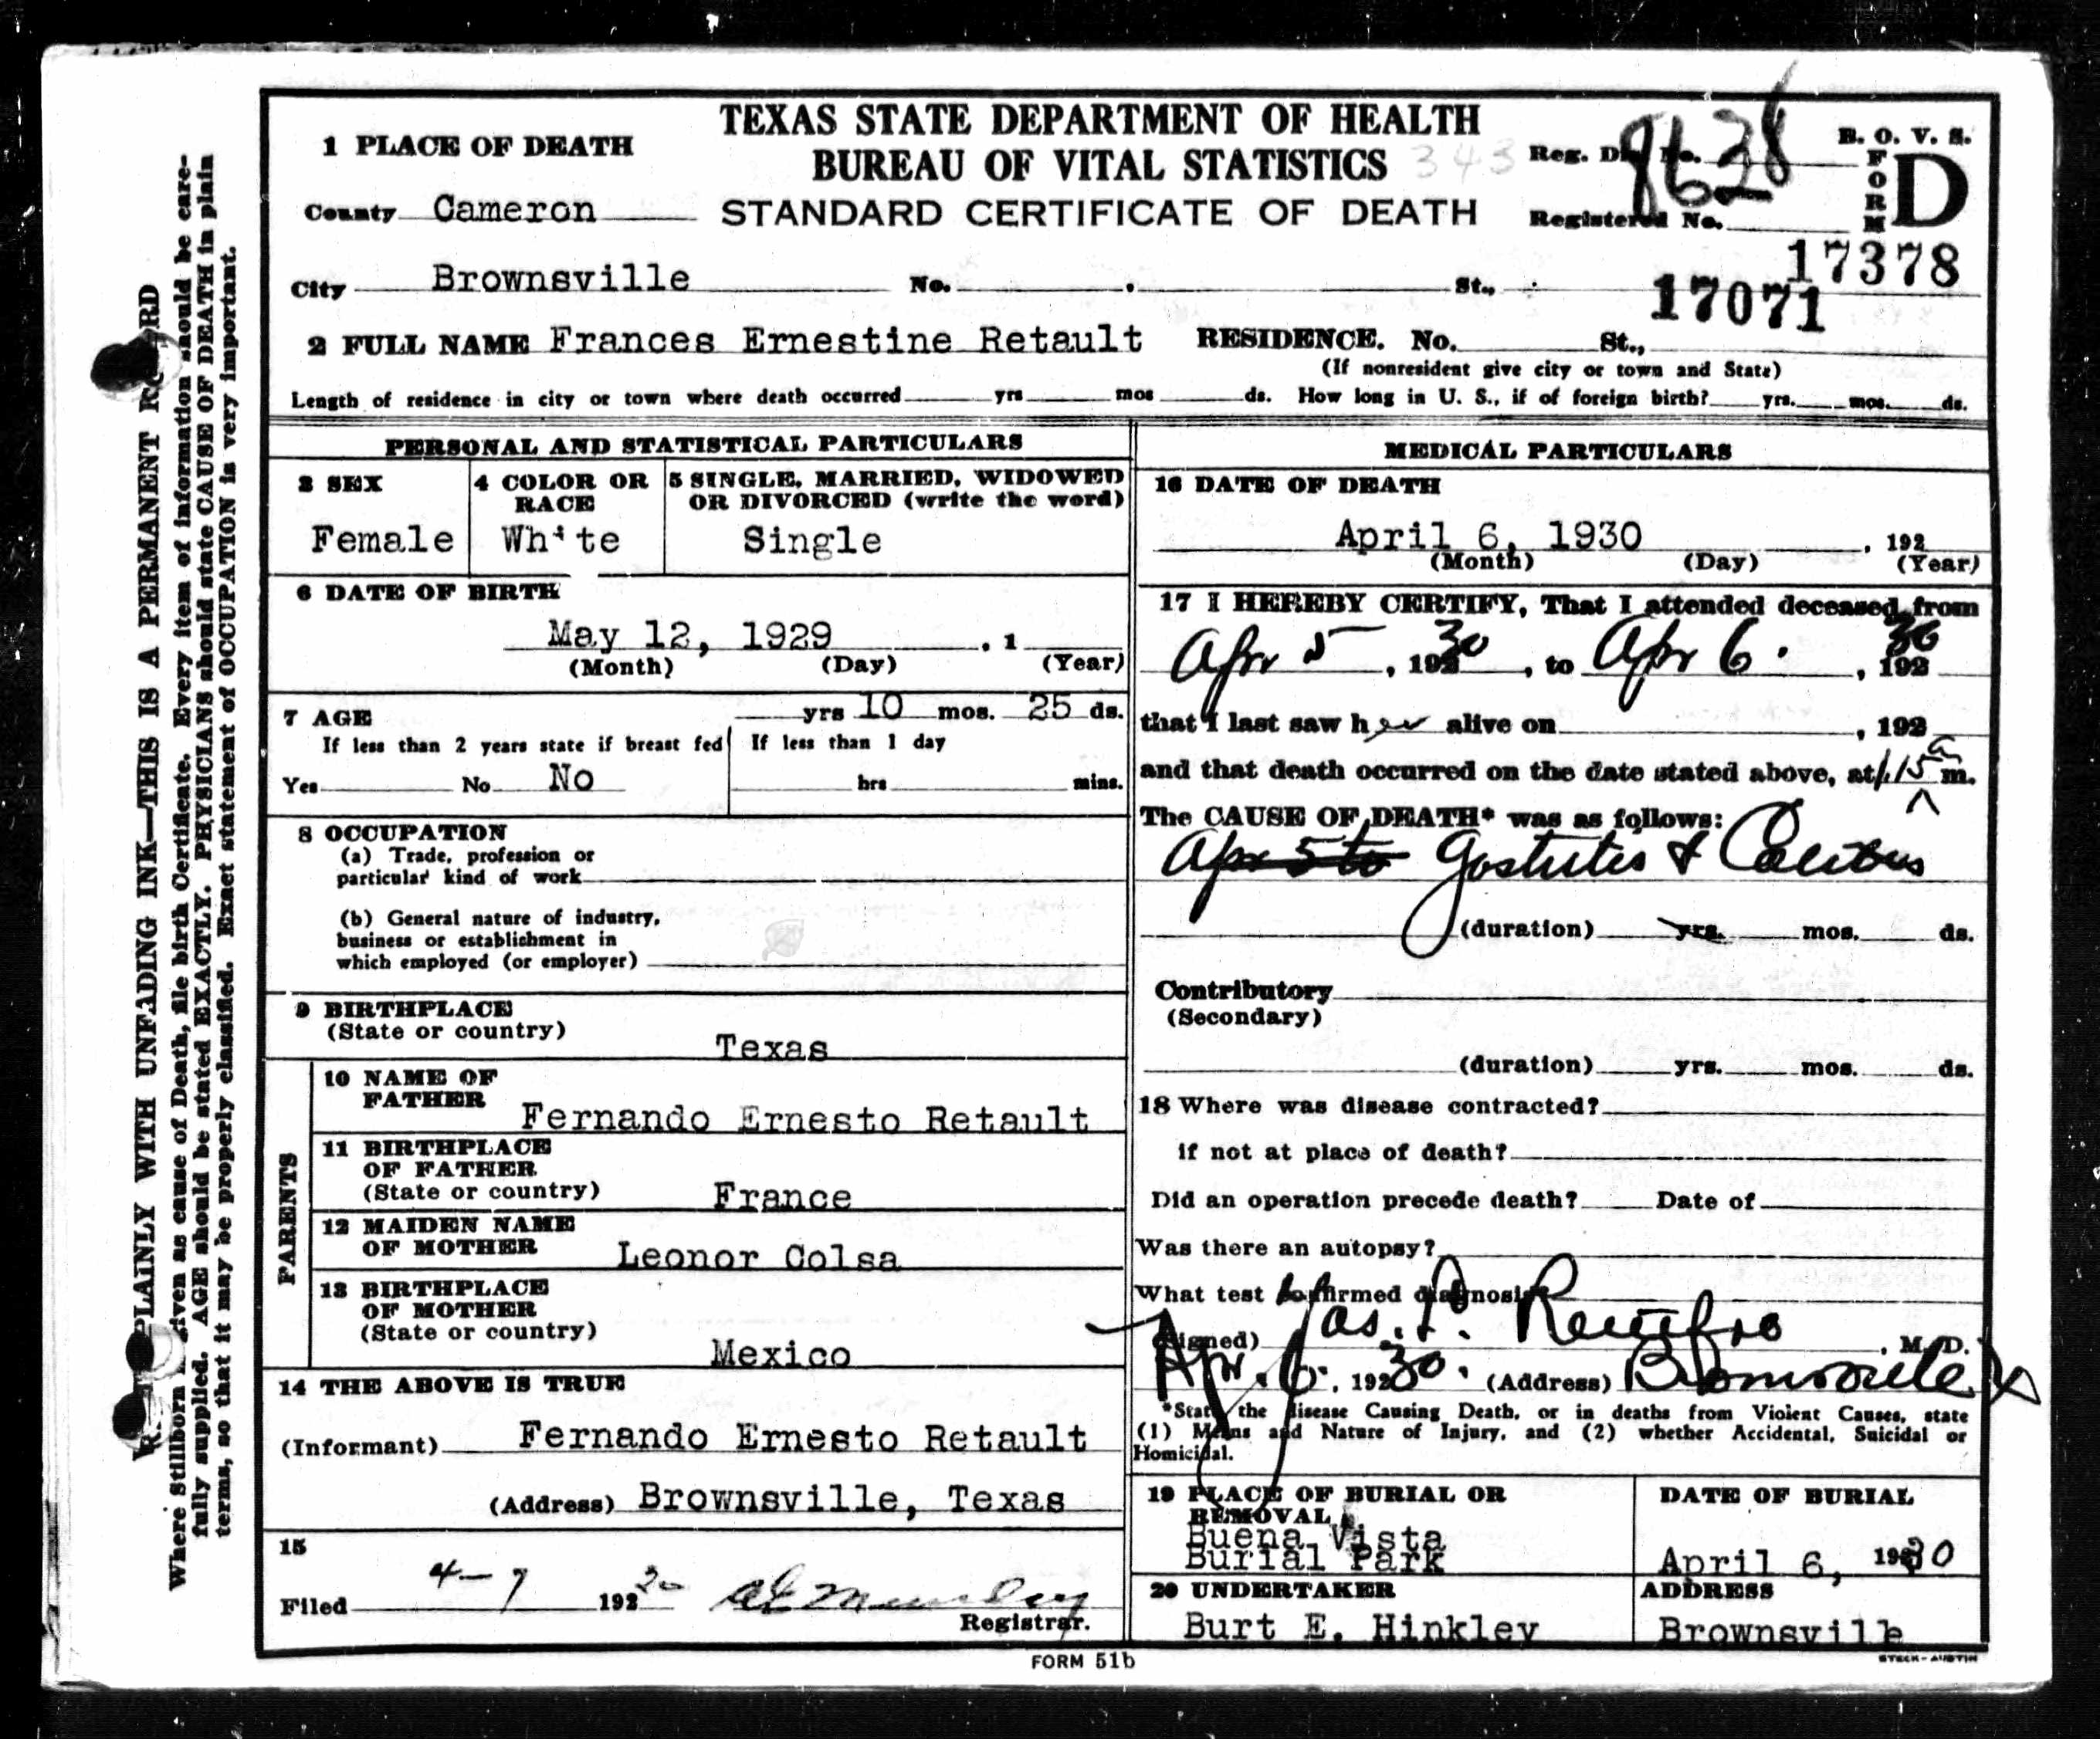 TEXAS STATE DEPARTMENT OF HEALTH
BUREAU OF VITAL STATISTICS
STANDARD CERTIFICATE OF DEATH
343
Reg. Dis. No.
8628
Registered No.
B. O. V. S.
FORM D
17378
17071
1 PLACE OF DEATH
County Cameron
City Brownsville No. St.,
2 FULL NAME Frances Ernestine Retault RESIDENCE. No. St.,
(If nonresident give city or town and State)
Length of residence in city or town where death occurred yrs mos ds. How long in U. S., if of foreign birth? yrs. mos. ds.
PERSONAL AND STATISTICAL PARTICULARS
3 SEX
Female
4 COLOR OR RACE
White
5 SINGLE, MARRIED, WIDOWED
OR DIVORCED (write the word)
Single
6 DATE OF BIRTH
May 12, 1929 , 1
(Month) (Day) (Year)
7 AGE yrs 10 mos. 25 ds.
If less than 2 years state if breast fed
Yes No No
If less than 1 day
hrs mins.
8 OCCUPATION
(a) Trade, profession or
particular kind of work
(b) General nature of industry,
business or establishment in
which employed (or employer)
9 BIRTHPLACE
(State or country)
Texas
PARENTS
10 NAME OF
FATHER
Fernando Ernesto Retault
11 BIRTHPLACE
OF FATHER
(State or country) France
12 MAIDEN NAME
OF MOTHER Leonor Colsa
13 BIRTHPLACE
OF MOTHER
(State or country)
Mexico
14 THE ABOVE IS TRUE
(Informant) Fernando Ernesto Retault
(Address) Brownsville, Texas
15
Filed 4-7 192 30
Registrar.
MEDICAL PARTICULARS
16 DATE OF DEATH
April 6, 1930 , 192
(Month) (Day) (Year)
17 I HEREBY CERTIFY, That I attended deceased from
Apr 5, 192 30, to Apr 6. , 192 30
that I last saw her alive on , 192
and that death occurred on the date stated above, at 1.15 a m.
The CAUSE OF DEATH* was as follows:
Apr 5 to Gastritis & Colitis
(duration) yrs. mos. ds.
Contributory
(Secondary)
(duration) yrs. mos. ds.
18 Where was disease contracted?
if not at place of death?
Did an operation precede death? Date of
Was there an autopsy?
What test confirmed diagnosis?
(Signed) Jas. L. Rentfro , M. D.
Apr. 6. , 192 30. (Address) Brownsville Tx
*State the disease Causing Death, or in deaths from Violent Causes, state
(1) Means and Nature of Injury, and (2) whether Accidental, Suicidal or
Homicidal.
19 PLACE OF BURIAL OR
REMOVAL
Buena Vista
Burial Park
DATE OF BURIAL
April 6, 1930
20 UNDERTAKER
Burt E. Hinkley
ADDRESS
Brownsville
FORM 51b
STECK-AUSTIN
PLAINLY WITH UNFADING INK—THIS IS A PERMANENT RECORD
Where Stillborn given as cause of Death, file birth Certificate. Every item of information should be care-
fully supplied. AGE should be stated EXACTLY. PHYSICIANS should state CAUSE OF DEATH in plain
terms, so that it may be properly classified. Exact statement of OCCUPATION is very important.